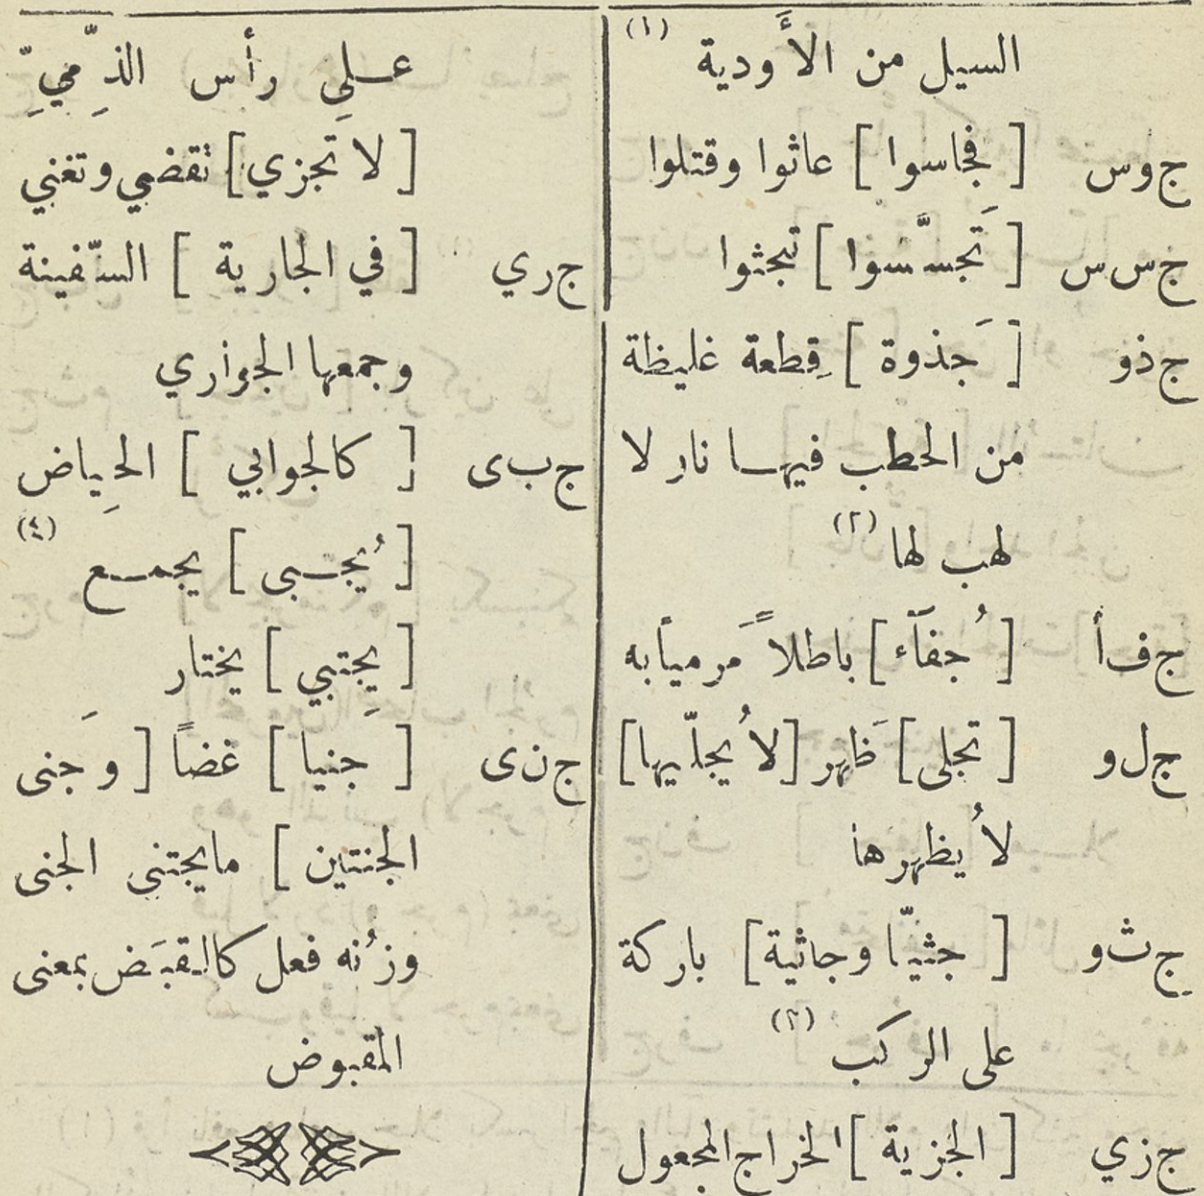 السيل من الأَودية (١)
ج‌وس [ فجاسوا ] عاثوا وقتلوا
ج‌س‌س [ تَجسَّسوا ] تبحثوا
ج‌ذو [ جَذوة ] قِطعة غليظة
من الحطب فيها نار لا
لهب لها (٢)
ج‌ف‌أ [ جُفَآء ] باطلاً مَرمياً به
ج‌ل‌و [ تجلى ] ظَهر [ لا يُجلّيها ]
لا يُظهرها
ج‌ث‌و [ جثيّا وجاثية ] باركة
على الركب (٣)
ج‌زي [ الجزية ] الخراج المجعول
عـلى رأس الذِّمِّيِّ
[ لا تجزي ] تقضي وتغني
ج‌ري [ في الجارية ] السّفينة
وجمعها الجواري
ج‌ب‌ى [ كالجوابي ] الحِياض
[ يُجـبى ] يجمـع (٤)
[ يجتَبي ] يختار
ج‌ن‌ى [ جَنيا ] غضاً [ وجَنى
الجنتين ] مايجتنى الجنى
وزُنه فعل كالقبَض بمعنى
المقبوض